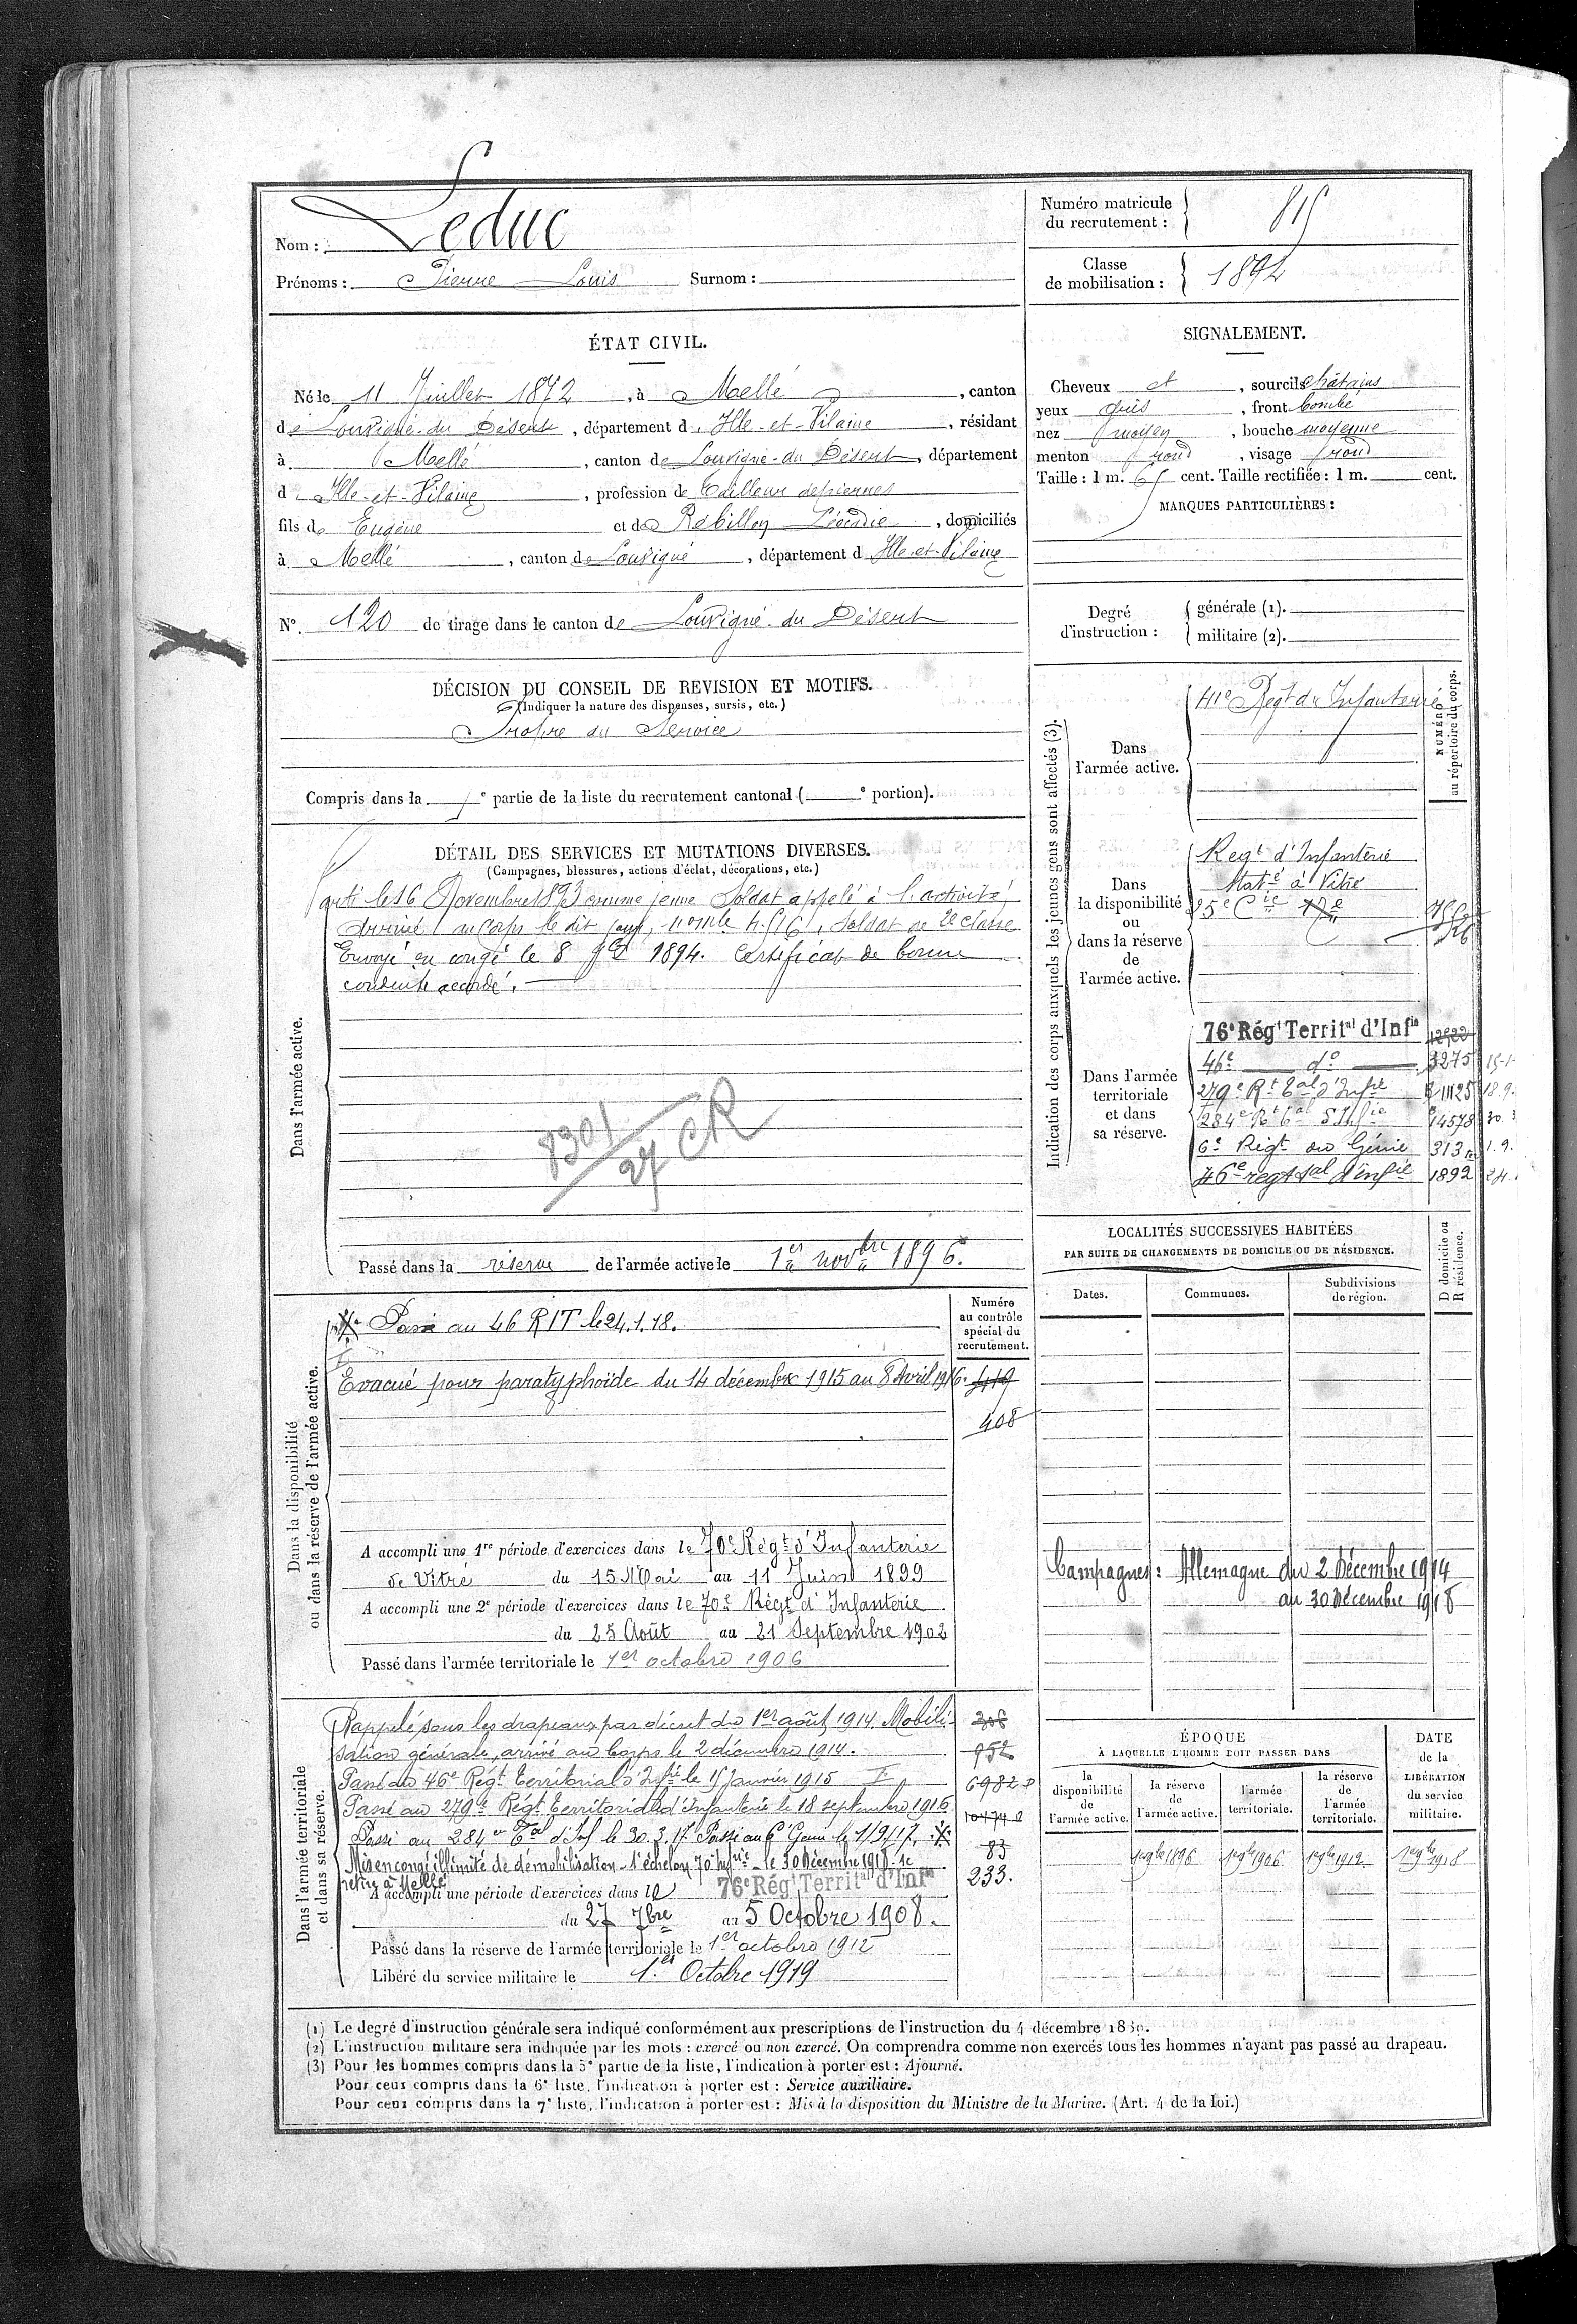 Nom : Leduc
Prénoms : Pierre Louis Surnom :
Numéro matricule du recrutement : 815
Classe de mobilisation : 1892
ÉTAT CIVIL.
Né le 11 Juillet 1872, à Mellé, canton
de Louvigné-du-Désert, département d'Ille-et-Vilaine, résidant
à Mellé, canton de Louvigné-du-Désert, département
d'Ille-et-Vilaine, profession de Tailleur de pierres
fils de Eugène et de Rébillon Léocadie, domiciliés
à Mellé, canton de Louvigné, département d'Ille-et-Vilaine
N° 120 de tirage dans le canton de Louvigné-du-Désert
SIGNALEMENT.
Cheveux et, sourcils châtains
yeux gris, front bombé
nez moyen, bouche moyenne
menton rond, visage rond
Taille : 1 m. 65 cent. Taille rectifiée : 1 m. cent.
MARQUES PARTICULIÈRES :
Degré d'instruction : générale (1).
militaire (2).
DÉCISION DU CONSEIL DE REVISION ET MOTIFS.
(Indiquer la nature des dispenses, sursis, etc.)
Propre au Service
Compris dans la e partie de la liste du recrutement cantonal ( e portion).
DÉTAIL DES SERVICES ET MUTATIONS DIVERSES.
(Campagnes, blessures, actions d'éclat, décorations, etc.)
Dans l'armée active.
Parti le 16 Novembre 1893 comme jeune Soldat appelé à l'activité
arrivé au corps le dit jour, Soldat de 2e classe
Envoyé en congé le 8 1894. Certificat de bonne
conduite accordé.
8301
27 CR
Passé dans la réserve de l'armée active le 1er novbre 1896.
Indication des corps auxquels les jeunes gens sont affectés (3).
NUMÉRO au répertoire du corps.
Dans l'armée active.
41e Regt d'Infanterie
Dans la disponibilité ou dans la réserve de l'armée active.
Regt d'Infanterie
Statné à Vitré
25e Cie
Dans l'armée territoriale et dans sa réserve.
76e Régt Territal d'Infie
46e do 3275
279e Rt Tal d'Infie 11125 18.9.
284e Rt Tal d'Infie 14578 30.3
6e Régt du Génie 313 1.9.
46e regt tal d'infie 1892 24.
LOCALITÉS SUCCESSIVES HABITÉES
PAR SUITE DE CHANGEMENTS DE DOMICILE OU DE RÉSIDENCE.
Dates. Communes. Subdivisions de région. D domicile ou R résidence.
Dans la disponibilité ou dans la réserve de l'armée active.
Numéro au contrôle spécial du recrutement.
Passé au 46 RIT le 24.1.18.
Evacué pour paratyphoïde du 14 décembre 1915 au 8 Avril 1916. 419
408
A accompli une 1re période d'exercices dans le 70e Régt d'Infanterie
de Vitré du 15 Mai au 11 Juin 1899
A accompli une 2e période d'exercices dans le 70e Régt d'Infanterie
du 25 Août au 21 Septembre 1902
Passé dans l'armée territoriale le 1er octobre 1906
Campagnes : Allemagne du 2 Décembre 1914
au 30 Décembre 1918
Dans l'armée territoriale et dans sa réserve.
Rappelé sous les drapeaux par décret du 1er août 1914. Mobili-
sation générale, arrivé au Corps le 2 décembre 1914. 952
Passé au 46e Régt Territorial d'Infie le 15 Janvier 1915 6982
Passé au 279e Régt Territorial d'Infanterie le 18 septembre 1916
Passé au 284e Tal d'Inf le 30.3.17 Passé au 6e Génie le 1/9/17. 83
Mis en congé illimité de démobilisation 1er échelon 70e Infrie le 30 Décembre 1918. se
retire à Mellé 233.
A accompli une période d'exercices dans le 76e Régt Territal d'Infie
du 27 7bre au 5 Octobre 1908.
Passé dans la réserve de l'armée territoriale le 1er octobre 1912
Libéré du service militaire le 1er Octobre 1919
ÉPOQUE
À LAQUELLE L'HOMME DOIT PASSER DANS
la disponibilité de l'armée active. la réserve de l'armée active. l'armée territoriale. la réserve de l'armée territoriale.
DATE de la LIBÉRATION du service militaire.
1896 1906 1912 1918
(1) Le degré d'instruction générale sera indiqué conformément aux prescriptions de l'instruction du 4 décembre
(2) L'instruction militaire sera indiquée par les mots : exercé ou non exercé. On comprendra comme non exercés tous les hommes n'ayant pas passé au drapeau.
(3) Pour les hommes compris dans la 5e partie de la liste, l'indication à porter est : Ajourné.
Pour ceux compris dans la 6e liste, l'indication à porter est : Service auxiliaire.
Pour ceux compris dans la 7e liste, l'indication à porter est : Mis à la disposition du Ministre de la Marine. (Art. 4 de la loi.)